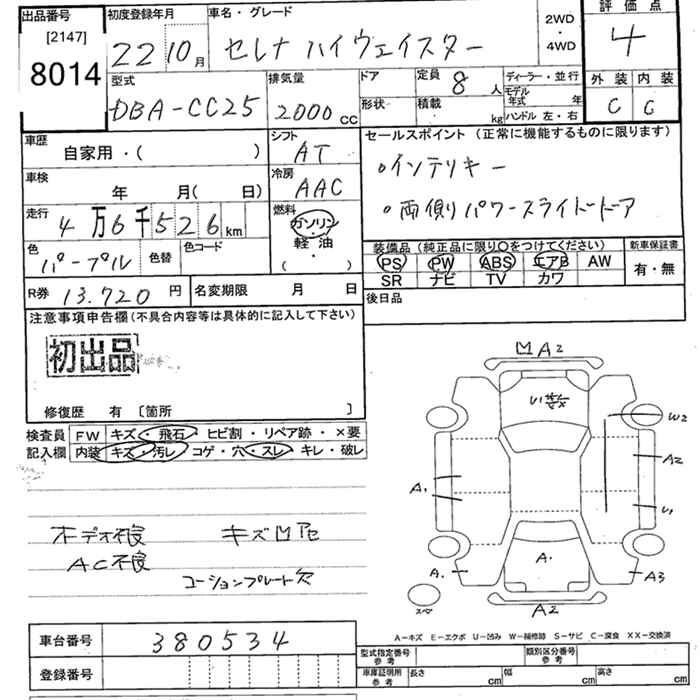 出品番号 初度登録年月 車名・グレード 2WD・4WD 評価点
[2147]
8014
22 10月 セレナ ハイウェイスター 4
型式 排気量 ドア 定員 8人 ディーラー・並行 外装 内装
DBA-CC25 2000cc 形状 積載 kg モデル年式 年 C C
ハンドル 左・右
車歴 シフト セールスポイント(正常に機能するものに限ります)
自家用・( ) AT ・インテリキー
車検 冷房
年 月( 日) AAC ・両側パワースライドドア
走行 燃料
4万6千526km ガソリン・軽油・( )
装備品(純正品に限り○をつけてください) 新車保証書
色 パープル 色替 色コード PS PW ABS エアB AW 有・無
SR ナビ TV カワ
R券 13.720円 名変期限 月 日 後日品
注意事項申告欄(不具合内容等は具体的に記入して下さい)
初出品
修復歴 有 〔箇所 〕
検査員 FW キズ・飛石・ヒビ割・リペア跡・×要
記入欄 内装 キズ・汚レ・コゲ・穴・スレ・キレ・破レ
A2
U1
W2
A2
A1
U1
A.
A. A3
A2
キズ凹
AC不良
コーションプレート欠
A-キズ E-エクボ U-凹み W-補修跡 S-サビ C-腐食 XX-交換済
車台番号 380534
型式指定番号 参考 類別区分番号 参考
登録番号
車庫証明用 参考 長さ cm 幅 cm 高さ cm